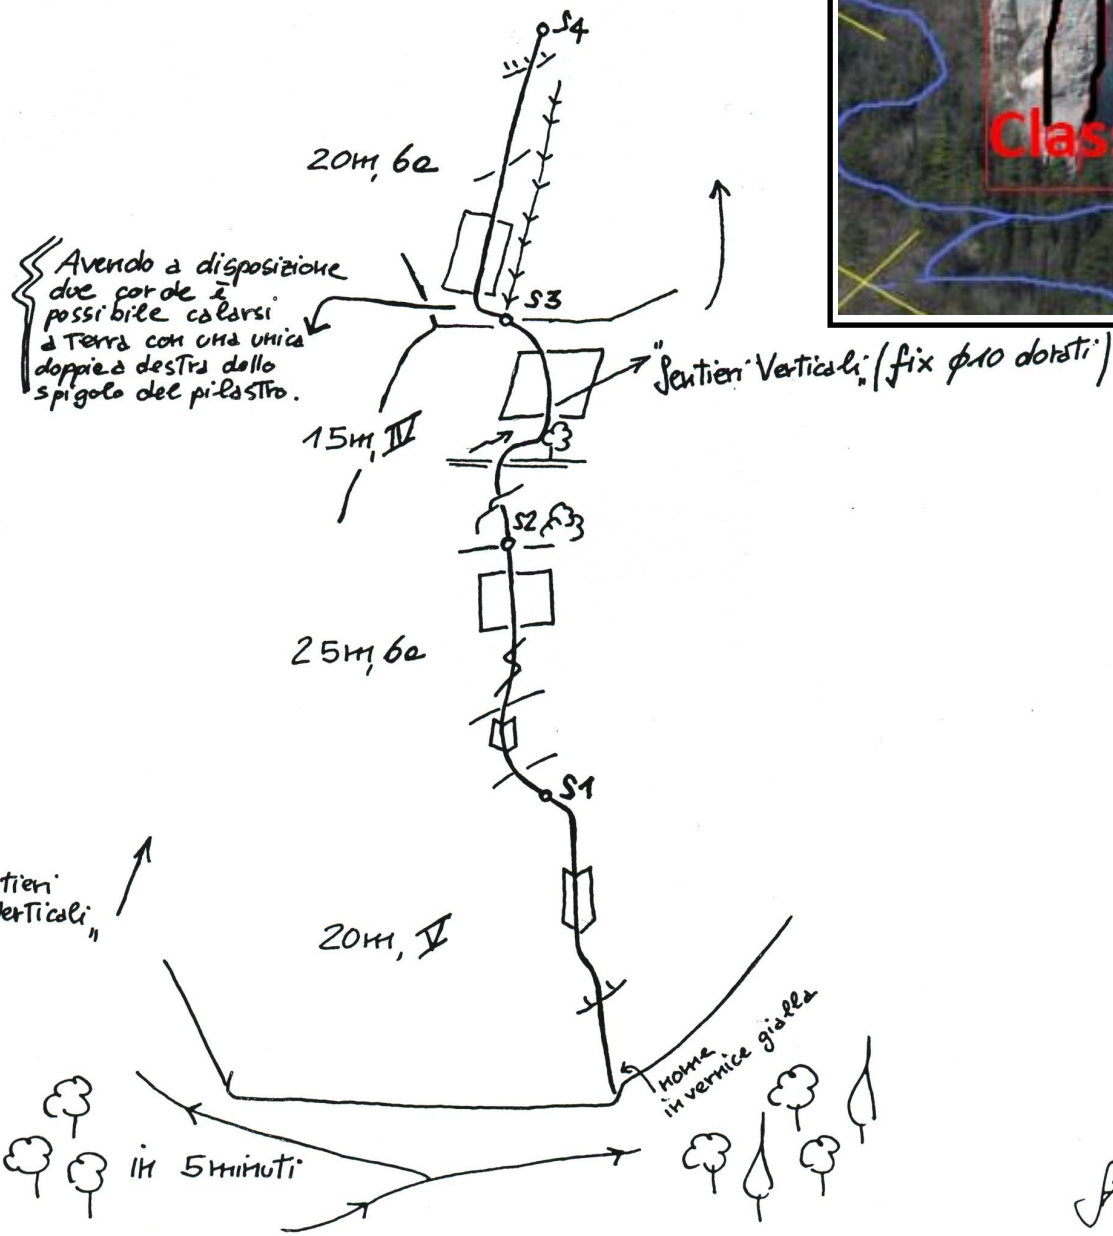 S4
20m, 6a
Clas
Avendo a disposizione
due corde è
possibile calarsi
a Terra con una unica
doppia a destra dello
spigolo del pilastro.
S3
"Sentieri Verticali" (fix φ10 dorati)
15m, IV
S2
25m, 6a
S1
tieri
erticali"
20m, V
nome
in vernice gialla
in 5 minuti